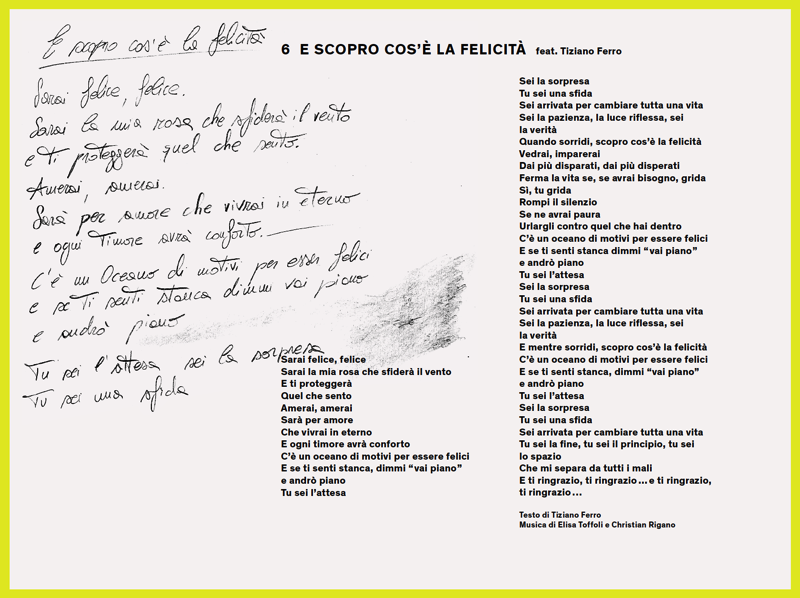 E scopro cos'è la felicità
Sarai felice, felice.
Sarai la mia rosa che sfiderà il vento
e ti proteggerà quel che sento.
Amerai, amerai.
Sarà per amore che vivrai in eterno
e ogni timore avrà conforto.
C'è un Oceano di motivi per esser felici
e se ti senti stanca dimmi vai piano
e andrò piano
Tu sei l'attesa sei la sorpresa
Tu sei una sfida
6 E SCOPRO COS'È LA FELICITÀ feat. Tiziano Ferro
Sarai felice, felice
Sarai la mia rosa che sfiderà il vento
E ti proteggerà
Quel che sento
Amerai, amerai
Sarà per amore
Che vivrai in eterno
E ogni timore avrà conforto
C'è un oceano di motivi per essere felici
E se ti senti stanca, dimmi “vai piano”
e andrò piano
Tu sei l'attesa
Sei la sorpresa
Tu sei una sfida
Sei arrivata per cambiare tutta una vita
Sei la pazienza, la luce riflessa, sei
la verità
Quando sorridi, scopro cos'è la felicità
Vedrai, imparerai
Dai più disparati, dai più disperati
Ferma la vita se, se avrai bisogno, grida
Sì, tu grida
Rompi il silenzio
Se ne avrai paura
Urlargli contro quel che hai dentro
C'è un oceano di motivi per essere felici
E se ti senti stanca dimmi “vai piano”
e andrò piano
Tu sei l'attesa
Sei la sorpresa
Tu sei una sfida
Sei arrivata per cambiare tutta una vita
Sei la pazienza, la luce riflessa, sei
la verità
E mentre sorridi, scopro cos'è la felicità
C'è un oceano di motivi per essere felici
E se ti senti stanca, dimmi “vai piano”
e andrò piano
Tu sei l'attesa
Sei la sorpresa
Tu sei una sfida
Sei arrivata per cambiare tutta una vita
Tu sei la fine, tu sei il principio, tu sei
lo spazio
Che mi separa da tutti i mali
E ti ringrazio, ti ringrazio... e ti ringrazio,
ti ringrazio...
Testo di Tiziano Ferro
Musica di Elisa Toffoli e Christian Rigano